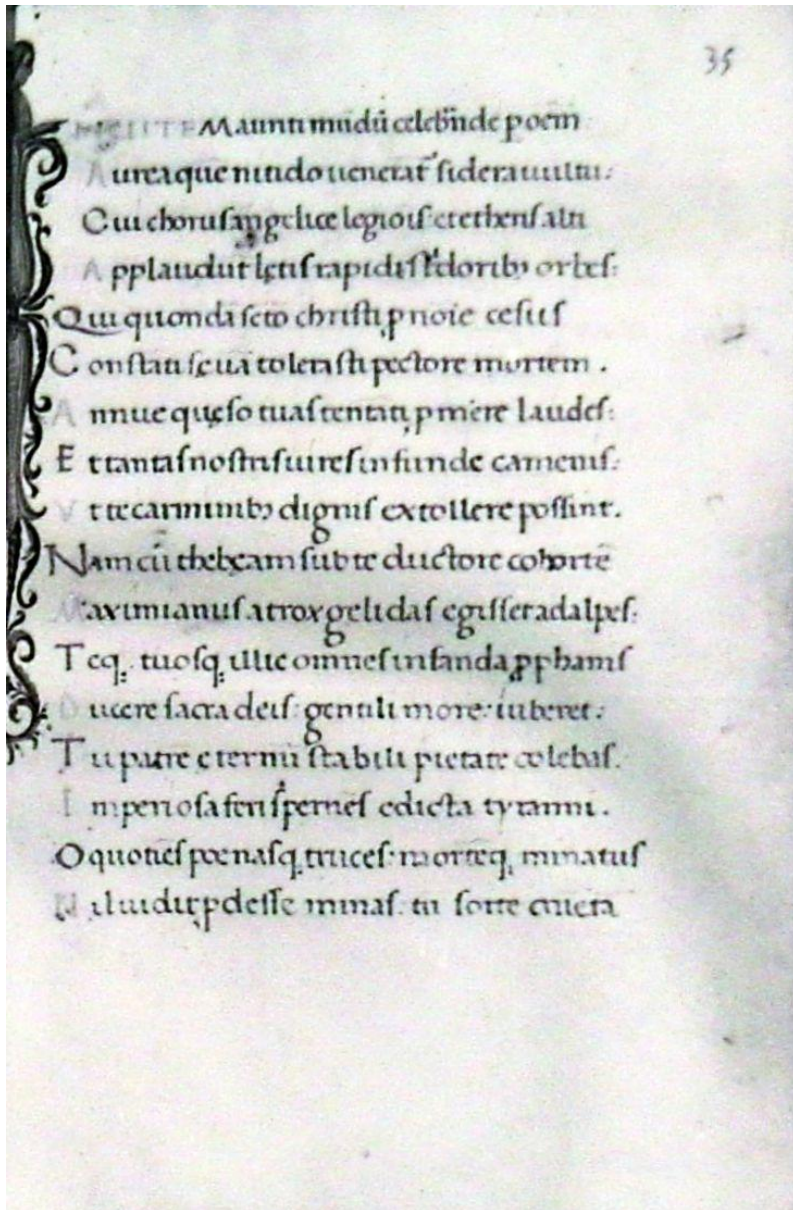 35
Mauriti mūdū celebrāde p oēm
Aurea que nitido venerat᷑ sidera uultu:
Cui chorus angelicę legiois et etheris alti
Applaudūt lętis rapidi splēdoribꝫ orbes:
Qui quondā scto christi p noie cesus
Constāti sęuā tolerasti pectore mortem.
Annue quęso tuas tentāti pmere laudes:
Et tantas nostris uires infunde camenis:
Vt te carminibꝫ dignis extollere possint.
Nam cū thebęam sub te ductore cohortē
Maximianus atrox gelidas egisset ad alpes:
Teq. tuosq. illic omnes infanda p phanis
Ducere sacra deis: gentili more iuberet:
Tu patrē ęternū stabili pietate colebas.
Imperiosa feri spernēs edicta tyranni.
O quotiēs poenasq. truces mortēq. minatus
ut sorte cruēta